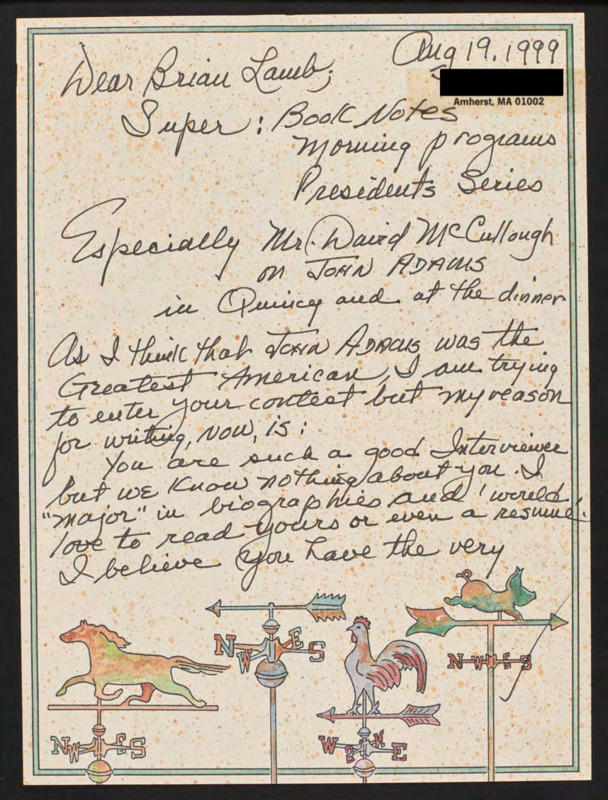 Aug 19, 1999
Dear Brian Lamb;
Amherst, MA 01002
Super: Book Notes
Morning programs
Presidents Series
Especially Mr. David McCullough
on JOHN ADAMS
in Quincy and at the dinner
As I think that JOHN ADAMS was the
Greatest American, I am trying
to enter your contest but my reason
for writing, NOW, is:
You are such a good Interviewer
but we know nothing about you. I
"major" in biographies and would
love to read yours or even a resumé.
I believe you have the very
N W E S
N W E S
W E N E
N W E S